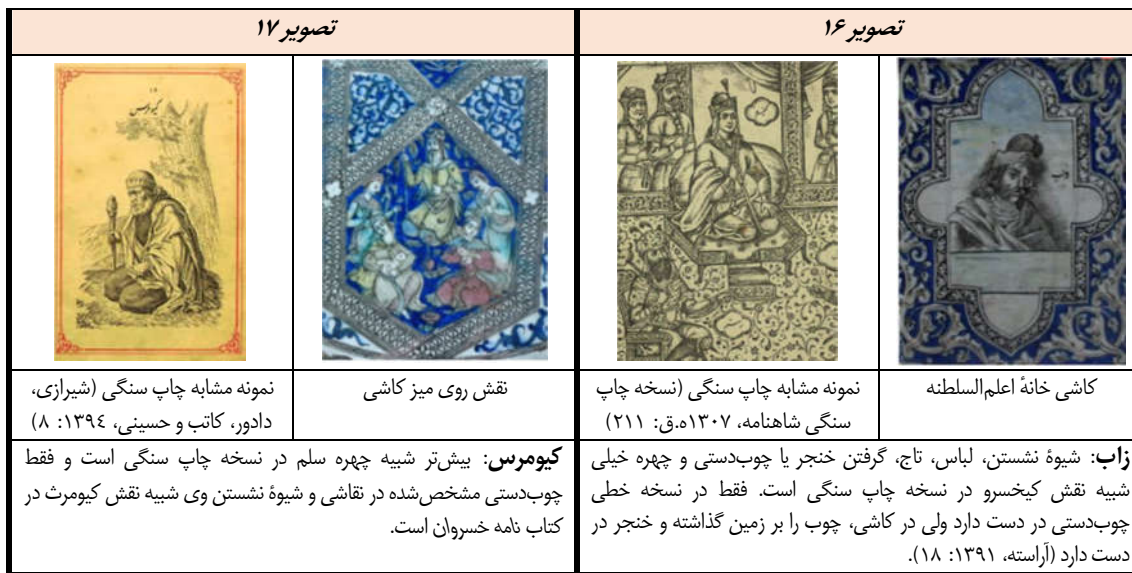 تصویر ۱۶
تصویر ۱۷
کاشی خانهٔ اعلم‌السلطنه
نمونه مشابه چاپ سنگی (نسخه چاپ
سنگی شاهنامه، ۱۳۰۷ه.ق: ۲۱۱)
نقش روی میز کاشی
۱۸
کیومرس
نمونه مشابه چاپ سنگی (شیرازی،
دادور، کاتب و حسینی، ۱۳۹٤: ۸)
زاب: شیوهٔ نشستن، لباس، تاج، گرفتن خنجر یا چوب‌دستی و چهره خیلی
شبیه نقش کیخسرو در نسخه چاپ سنگی است. فقط در نسخه خطی
چوب‌دستی در دست دارد ولی در کاشی، چوب را بر زمین گذاشته و خنجر در
دست دارد (آراسته، ۱۳۹۱: ۱۸).
کیومرس: بیش‌تر شبیه چهره سلم در نسخه چاپ سنگی است و فقط
چوب‌دستی مشخص‌شده در نقاشی و شیوهٔ نشستن وی شبیه نقش کیومرث در
کتاب نامه خسروان است.